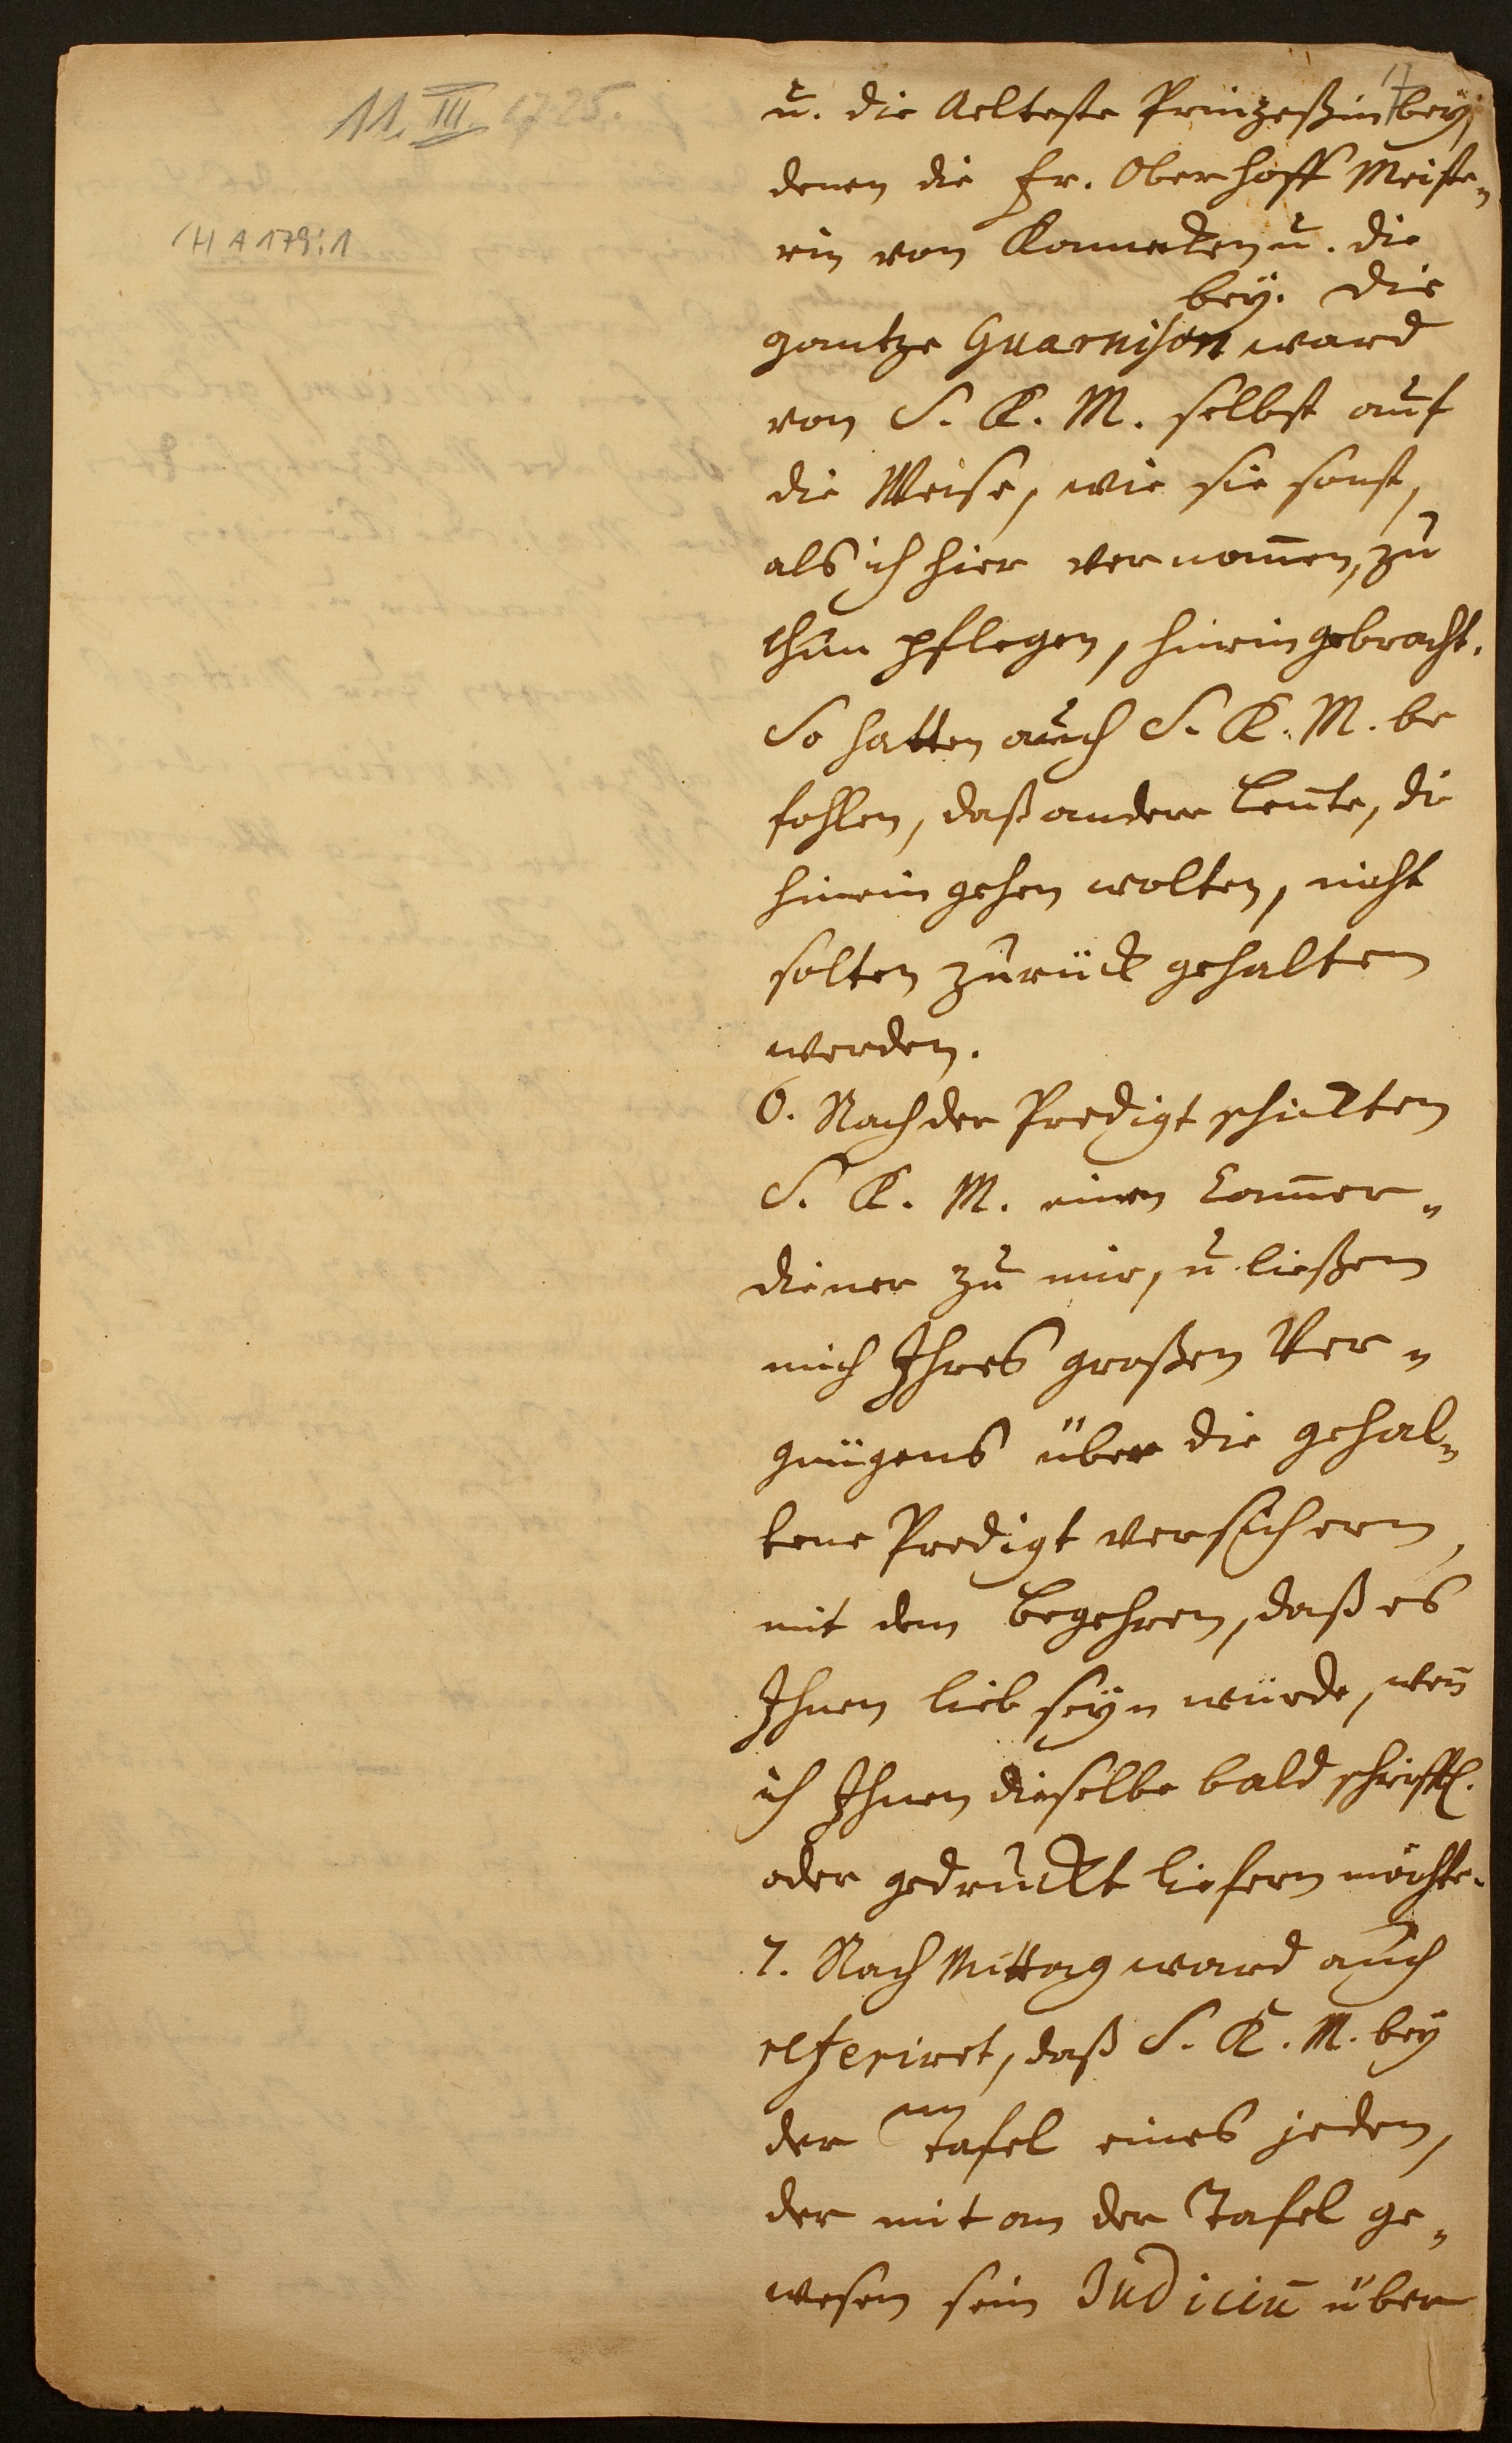 11. III 1725.
HA 179:1
17
u. die Aelteste Prinzeßin bey,
denen die Fr. Oberhoff Meiste-
rin von Kameken u. die
bey. Die
gantze Guarnison ward
von S. K. M. selbst auf
die Weise, wie sie sonst,
als ich hier vernom̄en, zu
thun pflegen, hinein gebracht.
So hatten auch S. K. M. be
fohlen, daß andere Leute, die
hinein gehen wolten, nicht
solten zurück gehalten
werden.
6. Nach der Predigt schickten
S. K. M. einen Cam̄er-
diener zu mir, u. ließen
mich Ihres großen Ver-
gnügens über die gehal-
tene Predigt versichern,
mit dem Begehren, daß es
Ihnen lieb seyn würde, wen̄
ich Ihnen dieselbe bald schrifftl.
oder gedruckt liefern möchte.
7. Nach Mittag ward auch
referiret, daß S. K. M. bey
der Tafel eines jeden,
der mit an der Tafel ge-
wesen sein Judiciū über